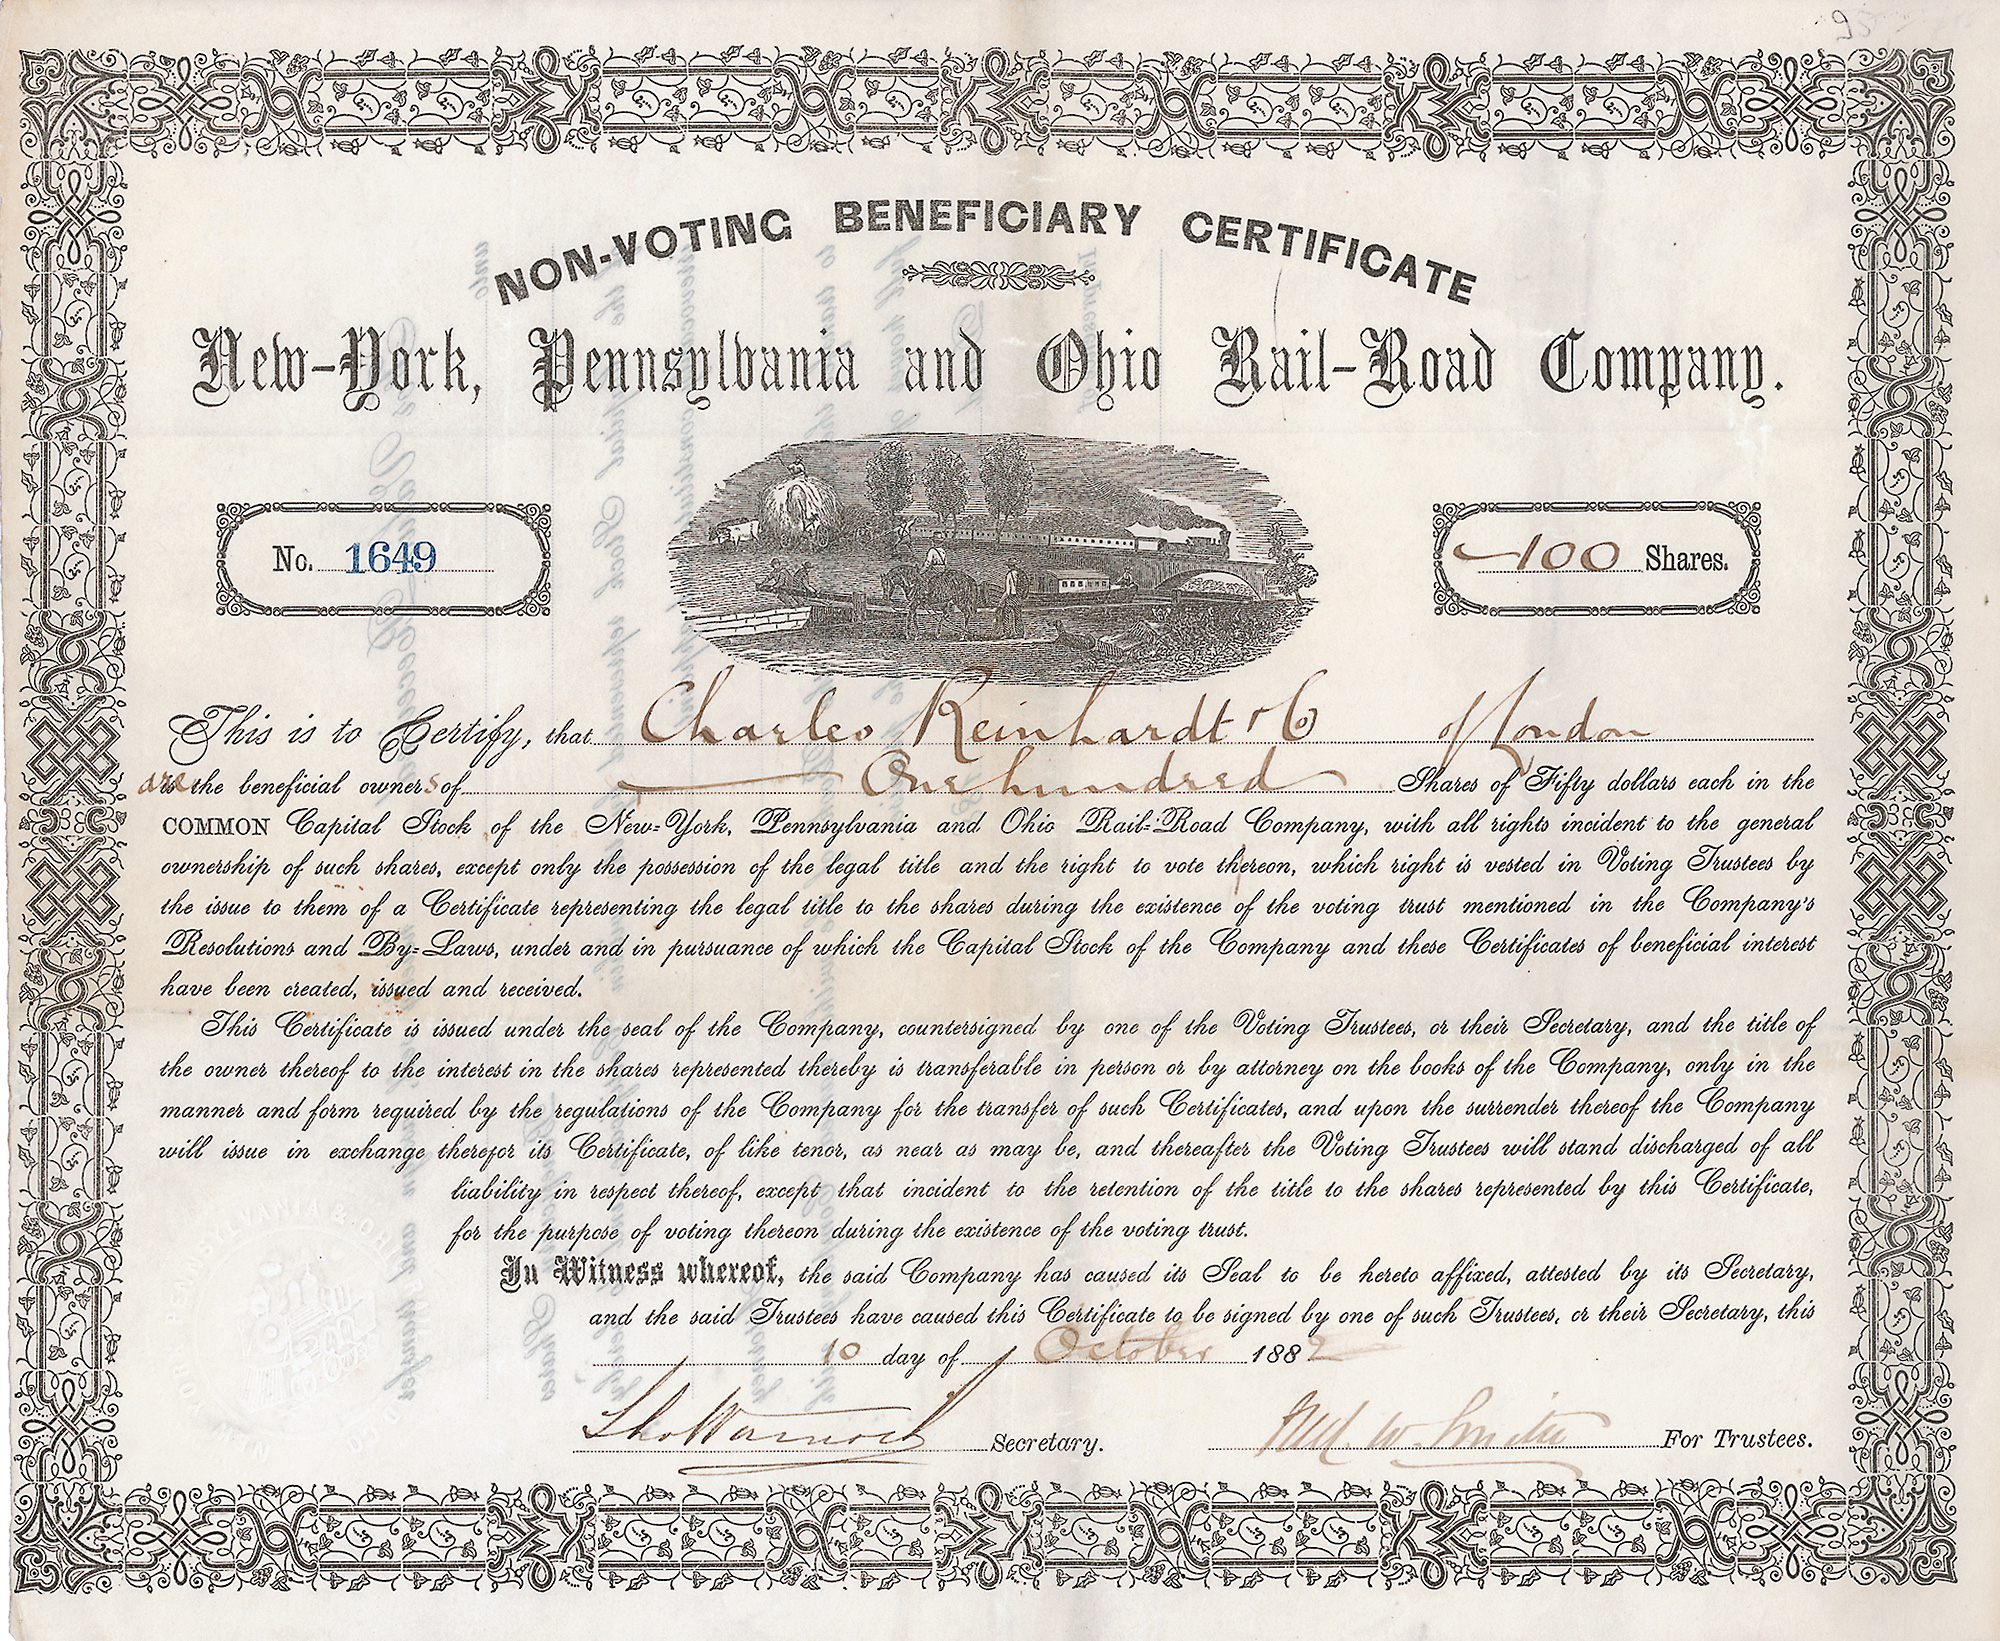 95
NON-VOTING BENEFICIARY CERTIFICATE
New-York, Pennsylvania and Ohio Rail-Road Company.
No. 1649
100 Shares.
This is to Certify, that Charles Reinhardt & Co of London
are the beneficial owners of One hundred Shares of Fifty dollars each in the
COMMON Capital Stock of the New-York, Pennsylvania and Ohio Rail-Road Company, with all rights incident to the general
ownership of such shares, except only the possession of the legal title and the right to vote thereon, which right is vested in Voting Trustees by
the issue to them of a Certificate representing the legal title to the shares during the existence of the voting trust mentioned in the Company's
Resolutions and By-Laws, under and in pursuance of which the Capital Stock of the Company and these Certificates of beneficial interest
have been created, issued and received.
This Certificate is issued under the seal of the Company, countersigned by one of the Voting Trustees, or their Secretary, and the title of
the owner thereof to the interest in the shares represented thereby is transferable in person or by attorney on the books of the Company, only in the
manner and form required by the regulations of the Company for the transfer of such Certificates, and upon the surrender thereof the Company
will issue in exchange therefor its Certificate, of like tenor, as near as may be, and thereafter the Voting Trustees will stand discharged of all
liability in respect thereof, except that incident to the retention of the title to the shares represented by this Certificate,
for the purpose of voting thereon during the existence of the voting trust.
In Witness whereof, the said Company has caused its Seal to be hereto affixed, attested by its Secretary,
and the said Trustees have caused this Certificate to be signed by one of such Trustees, or their Secretary, this
10 day of October 1882
Theo Warnock Secretary.
W. Smith For Trustees.